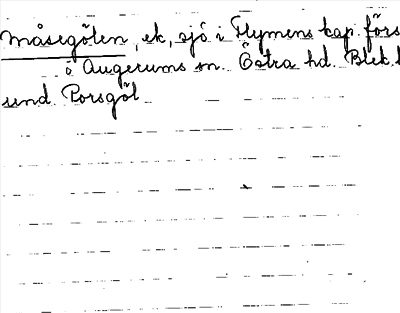 Måsegölen, ek, sjö i Flymens kap. förs
ö Augerums sn. Östra hd. Blek.l
send. Porsgöl